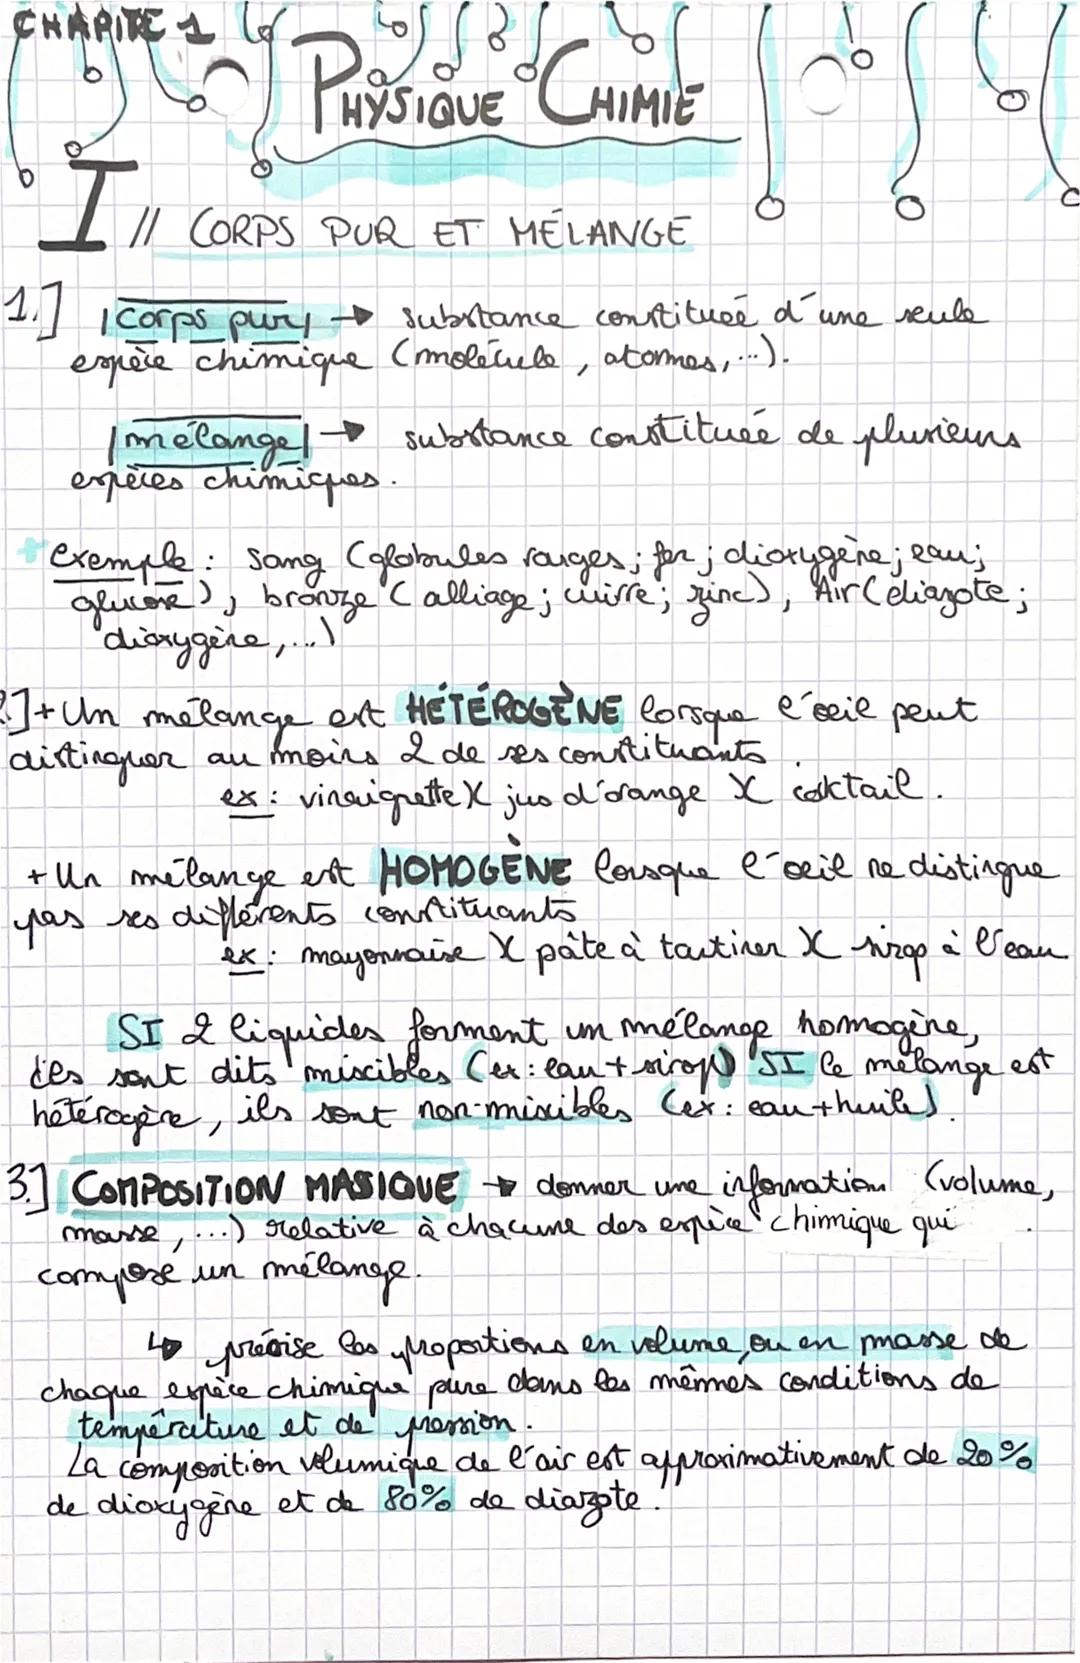 CHAPITE 1
PHYSIQUE CHIMIE
I // CORPS PUR ET MÉLANGE
1.] corps pur → substance constitueé d'une seule
espèce chimique (molécule, atomes, ...).
mélange → substance constitueé de plusieurs
espèces chimiques.
+ exemple : sang (globules rouges ; fer ; dioxygène ; eau ;
glucose), bronze (alliage ; cuivre ; zinc), Air (diazote ;
dioxygène, ...)
2.] + Un mélange est HÉTÉROGÈNE lorsque l'œil peut
distinguer au moins 2 de ses constituants.
ex : vinaigrette X jus d'orange X coktail.
+ Un mélange est HOMOGÈNE lorsque l'œil ne distingue
pas ses différents constituants
ex : mayonnaise X pâte à tartiner X sirop à l'eau
SI 2 liquides forment un mélange homogène,
ils sont dits miscibles (ex : eau + sirop) SI le mélange est
hétérogène, ils sont non-miscibles (ex : eau + huile).
3.] COMPOSITION MASIQUE → donner une information (volume,
masse, ...) relative à chacune des espèce chimique qui
compose un mélange.
↳ précise les proportions en volume ou en masse de
chaque espèce chimique pure dans les mêmes conditions de
température et de pression.
La composition volumique de l'air est approximativement de 20%
de dioxygène et de 80% de diazote.